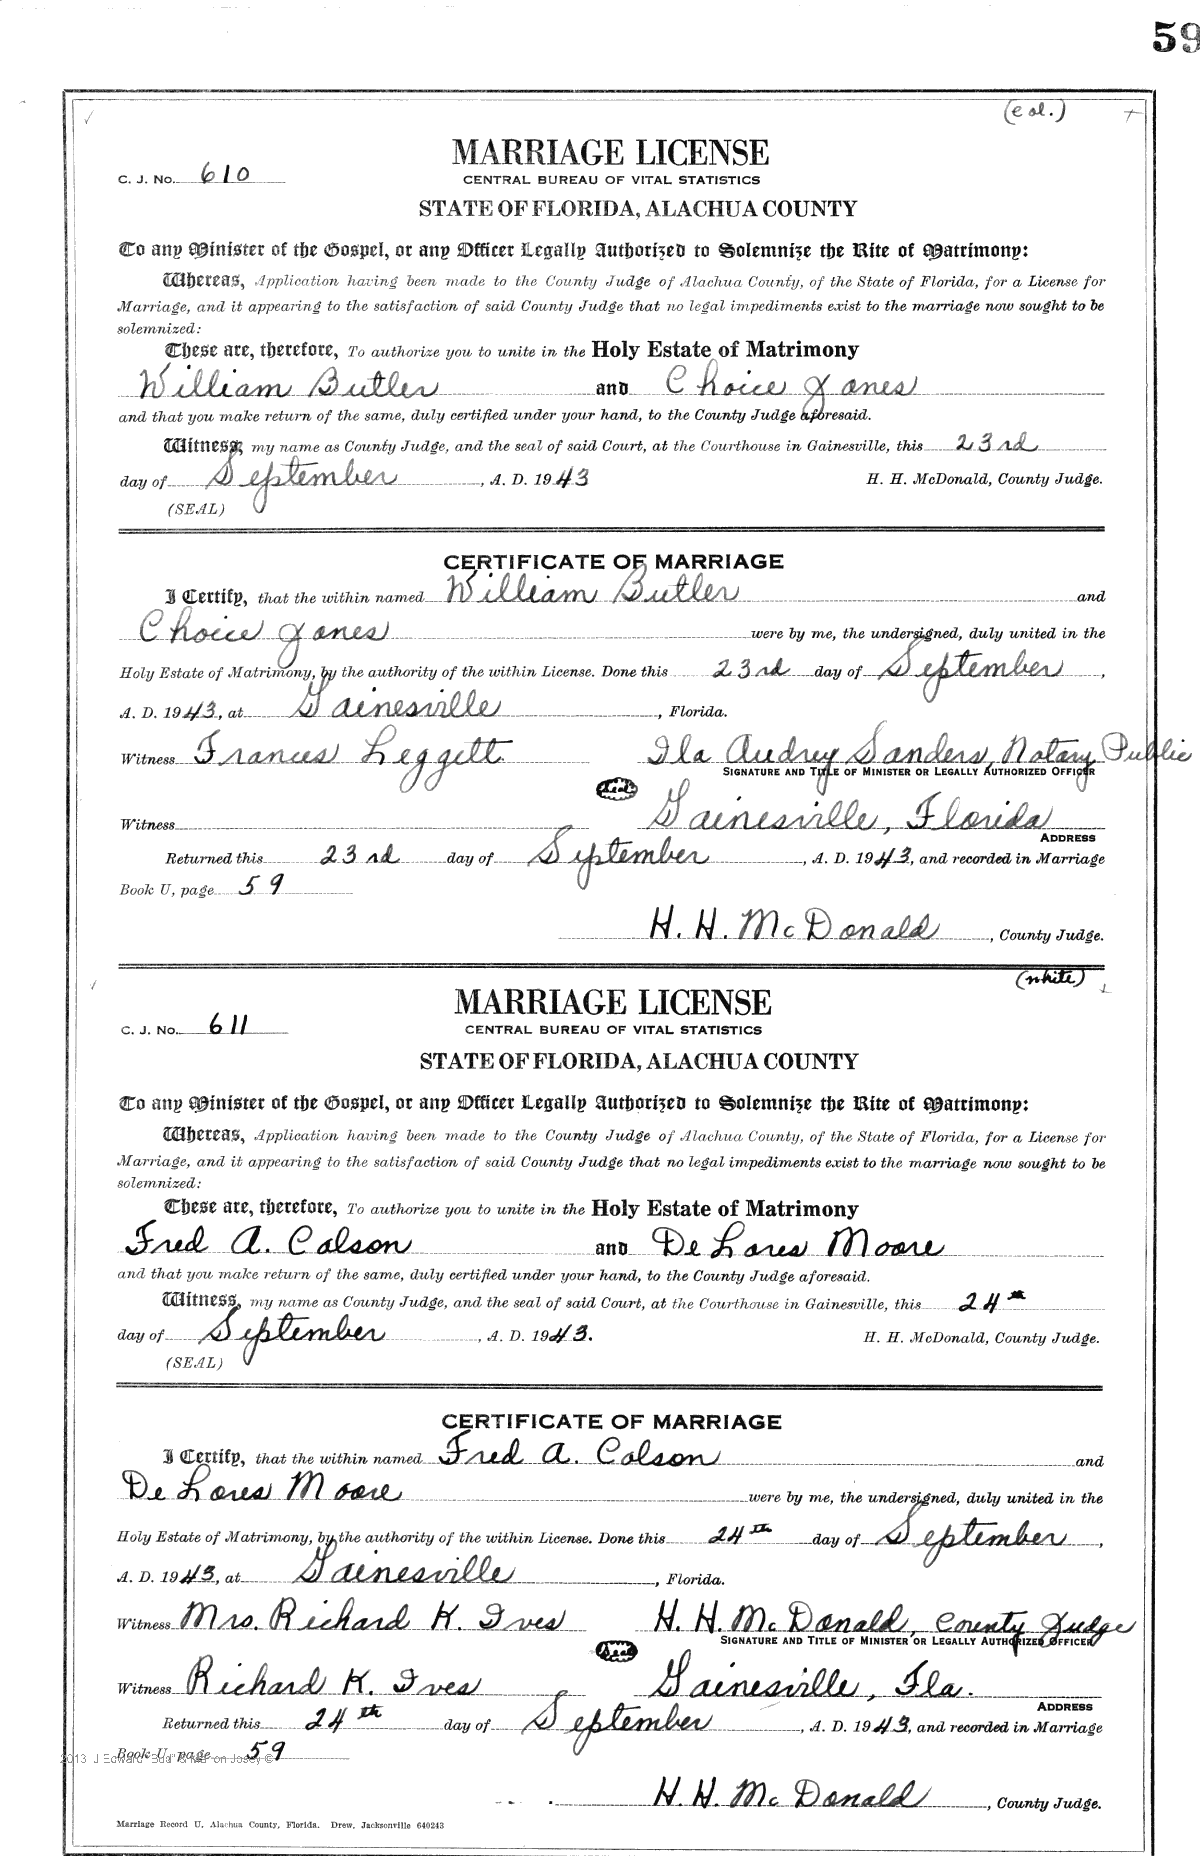 59
(col.)
MARRIAGE LICENSE
C. J. No. 610
CENTRAL BUREAU OF VITAL STATISTICS
STATE OF FLORIDA, ALACHUA COUNTY
To any Minister of the Gospel, or any Officer Legally Authorized to Solemnize the Rite of Matrimony:
Whereas, Application having been made to the County Judge of Alachua County, of the State of Florida, for a License for
Marriage, and it appearing to the satisfaction of said County Judge that no legal impediments exist to the marriage now sought to be
solemnized:
These are, therefore, To authorize you to unite in the Holy Estate of Matrimony
William Butler and Choice Jones
and that you make return of the same, duly certified under your hand, to the County Judge aforesaid.
Witness, my name as County Judge, and the seal of said Court, at the Courthouse in Gainesville, this 23rd
day of September, A. D. 1943 H. H. McDonald, County Judge.
(SEAL)
CERTIFICATE OF MARRIAGE
I Certify, that the within named William Butler and
Choice Jones were by me, the undersigned, duly united in the
Holy Estate of Matrimony, by the authority of the within License. Done this 23rd day of September,
A. D. 1943, at Gainesville, Florida.
Witness Frances Leggett Ila Audrey Sanders, Notary Public
SIGNATURE AND TITLE OF MINISTER OR LEGALLY AUTHORIZED OFFICER
(Seal)
Gainesville, Florida
Witness
ADDRESS
Returned this 23rd day of September, A. D. 1943, and recorded in Marriage
Book U, page 59
H. H. McDonald, County Judge.
(white)
MARRIAGE LICENSE
C. J. No. 611
CENTRAL BUREAU OF VITAL STATISTICS
STATE OF FLORIDA, ALACHUA COUNTY
To any Minister of the Gospel, or any Officer Legally Authorized to Solemnize the Rite of Matrimony:
Whereas, Application having been made to the County Judge of Alachua County, of the State of Florida, for a License for
Marriage, and it appearing to the satisfaction of said County Judge that no legal impediments exist to the marriage now sought to be
solemnized:
These are, therefore, To authorize you to unite in the Holy Estate of Matrimony
Fred A. Colson and De Lores Moore
and that you make return of the same, duly certified under your hand, to the County Judge aforesaid.
Witness, my name as County Judge, and the seal of said Court, at the Courthouse in Gainesville, this 24th
day of September, A. D. 1943. H. H. McDonald, County Judge.
(SEAL)
CERTIFICATE OF MARRIAGE
I Certify, that the within named Fred A. Colson and
De Lores Moore were by me, the undersigned, duly united in the
Holy Estate of Matrimony, by the authority of the within License. Done this 24th day of September,
A. D. 1943, at Gainesville, Florida.
Witness Mrs. Richard K. Ives H. H. McDonald, County Judge
SIGNATURE AND TITLE OF MINISTER OR LEGALLY AUTHORIZED OFFICER
(Seal)
Witness Richard K. Ives Gainesville, Fla.
ADDRESS
Returned this 24th day of September, A. D. 1943, and recorded in Marriage
Book U, page 59
2013 J Edward "Budd" & Marion Josey ©
H. H. McDonald, County Judge.
Marriage Record U, Alachua County, Florida. Drew, Jacksonville 640243